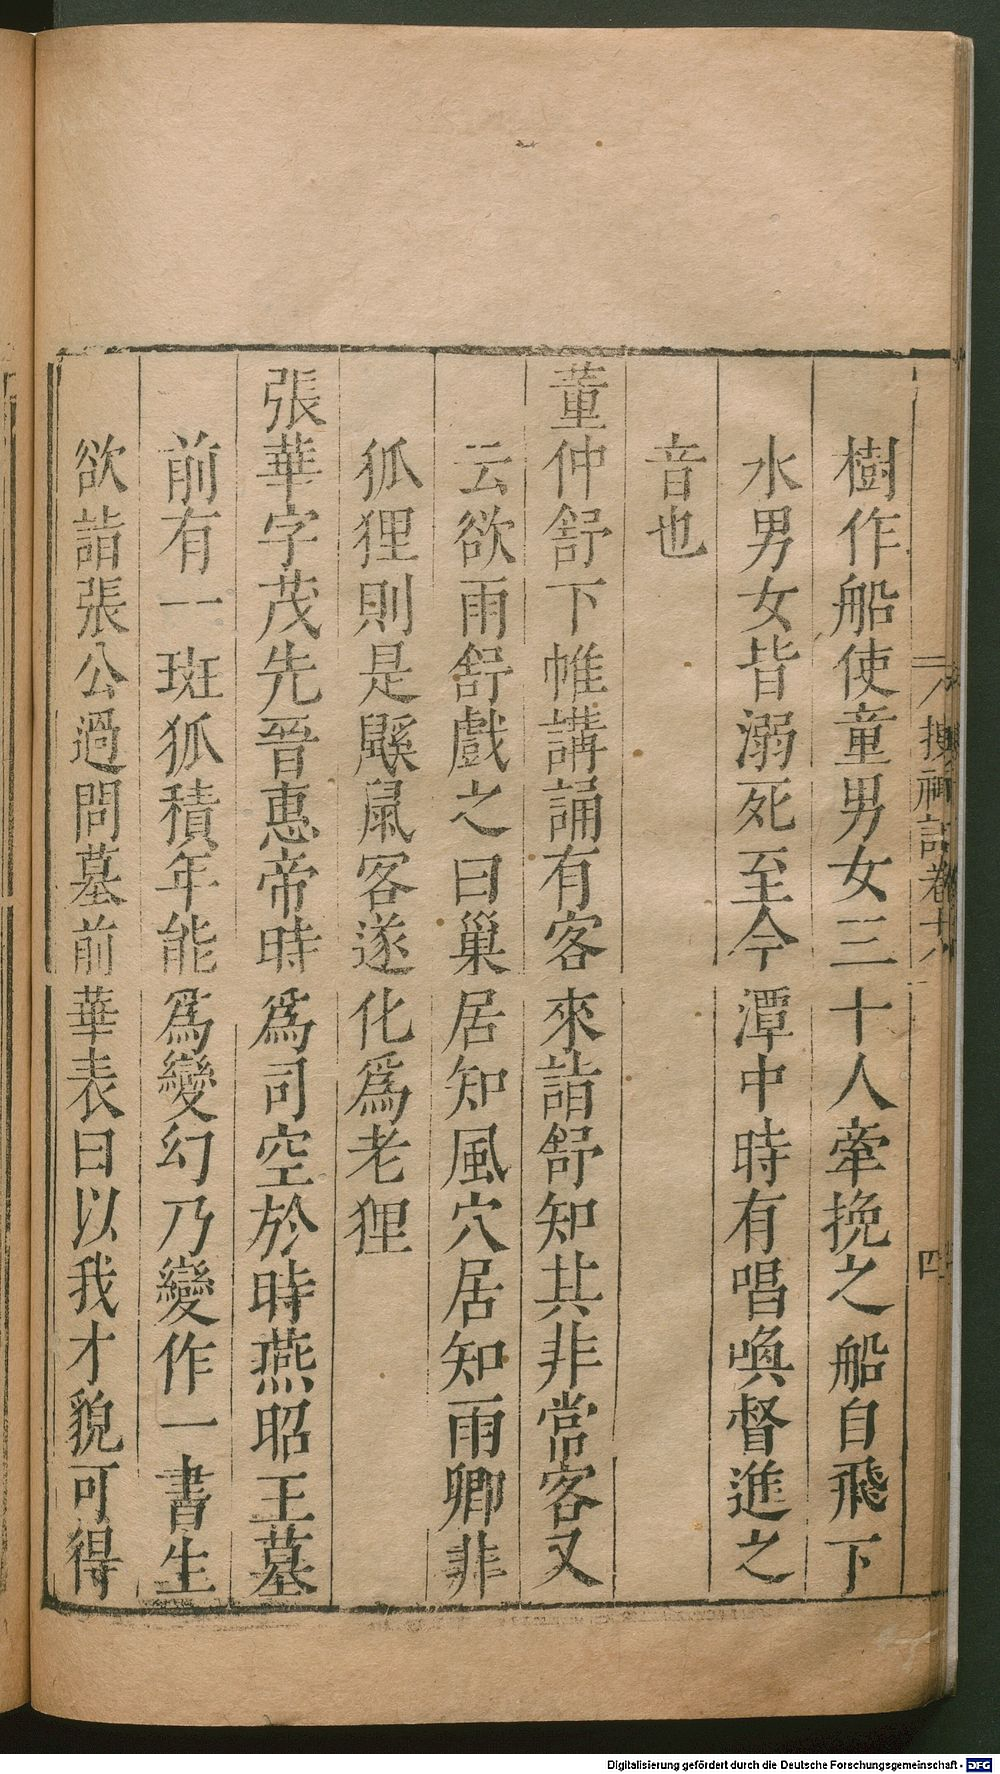 樹作船使童男女三十人牽挽之船自飛下
水男女皆溺死至今潭中時有唱喚督進之
音也
董仲舒下帷講誦有客來詣舒知其非常客又
云欲雨舒戲之曰巢居知風穴居知雨卿非
狐狸則是鼷鼠客遂化爲老狸
張華字茂先晉惠帝時爲司空於時燕昭王墓
前有一斑狐積年能爲變幻乃變作一書生
欲詣張公過問墓前華表曰以我才貌可得
搜神記卷十八
四
Digitalisierung gefördert durch die Deutsche Forschungsgemeinschaft - DFG